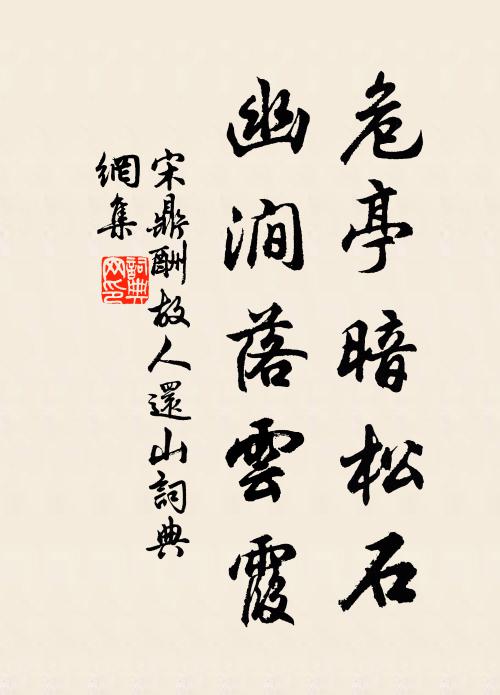 危亭暗松石
幽澗落雲霞
宋鼎酬故人還山詞典
網集
詞典
网印